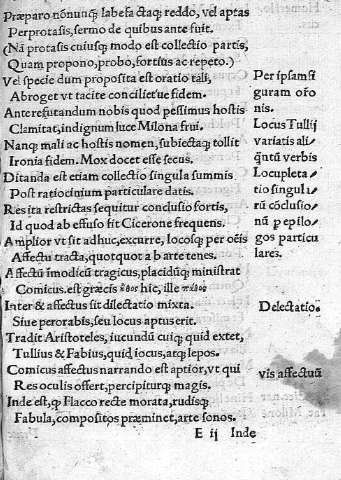 Præparo nõnunꝗ labefactaꝗ reddo, vel aptas
Perprotasis, sermo de quibus ante fuit.
(Nã protasis cuiusꝗ modo est collectio partis,
Quam propono, probo, fortius ac repeto.)
Vel specie dum proposita est oratio tali,
Abroget vt tacite concilietꝰue fidem.
Anterefutandum nobis quod pessimus hostis
Clamitat, indignum luce Milona frui.
Nanꝗ mali ac hostis nomen, subiectaꝗ tollit
Ironia fidem. Mox docet esse secus.
Ditanda est etiam collectio singula summis
Post ratiocinium particulare datis.
Res ita restrictas sequitur conclusio fortis,
Id quod ab effuso fit Cicerone frequens.
Amplior vt sit adhuc, excurre, locosꝗ per oẽis
Affectu tracta, quotquot ab arte tenes.
Affectũ ĩmodicũ tragicus, placidũꝗ ministrat
Comicus. est græcis ἦθος hic, ille πάθος
Inter & affectus sit dilectatio mixta.
Siue perorabis, seu locus aptus erit.
Tradit Aristoteles, iucundũ cuiꝗ quid extet,
Tullius & Fabius, quid iocus, atꝗ lepos.
Comicus affectus narrando est aptior, vt qui
Res oculis offert, percipiturꝗ magis.
Inde est, ꝙ Flacco recte morata, rudisꝗ
Fabula, compositos præminet, arte sonos.
E ij Inde
Per ipsam fi
guram orõ
nis.
Locus Tullij
variatis ali
q̃ntũ verbis
Locupleta
tio singulɑ
rũ cõclusio
nũ p epilo
gos particu
lares.
Delectatio.
vis affectuũ